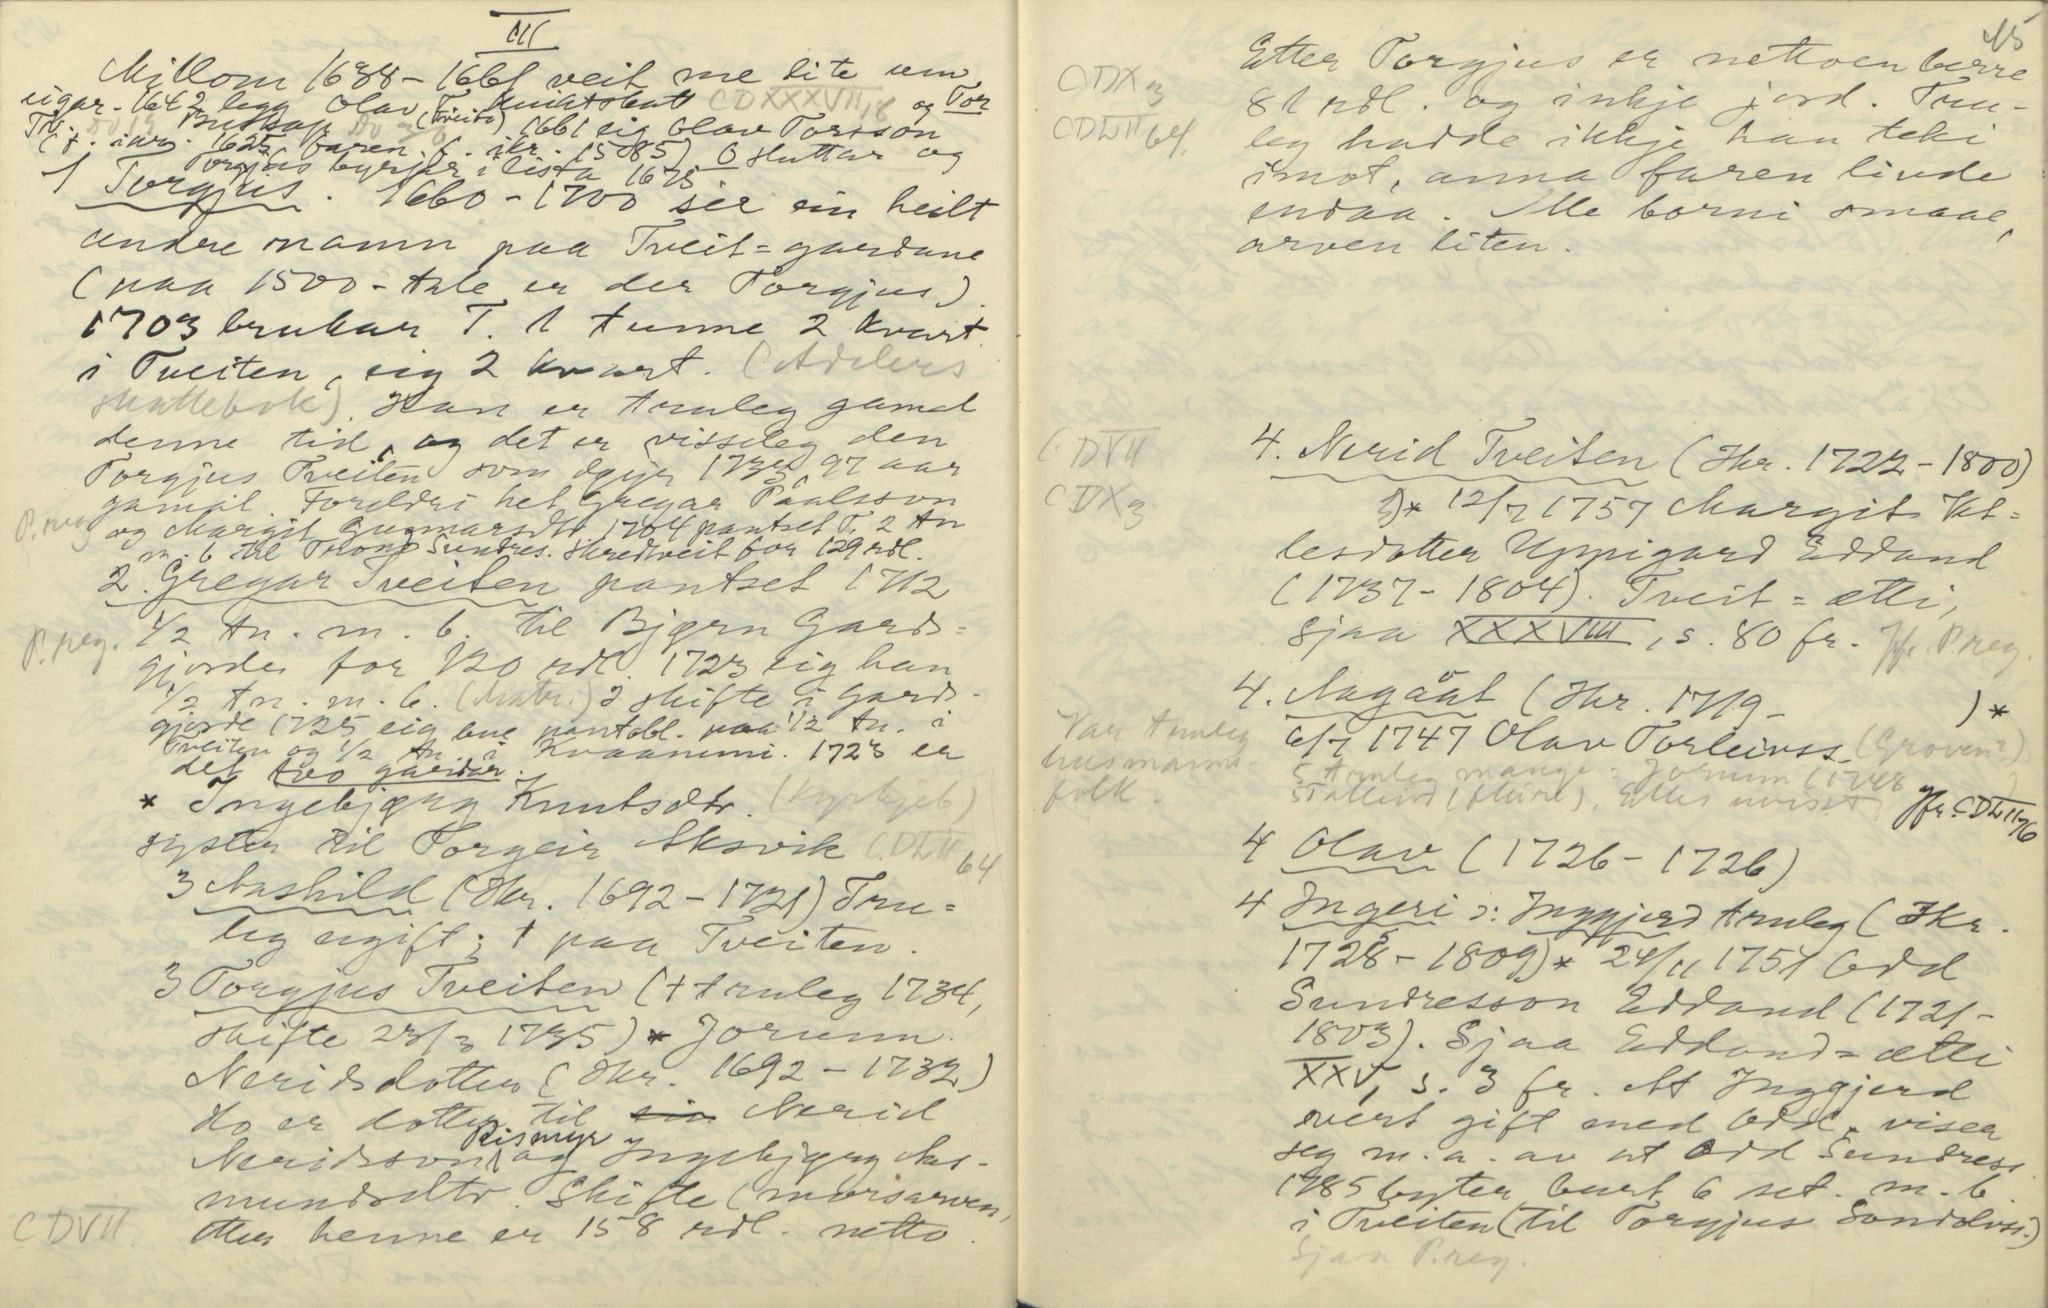 III
Millom 1638-1661 veit me lite um
eigar. 1642 legg Olav T. kniktskatt CDXXXVII og Tor
Tv. Buskap (Tveito) 1661 eig Olav Torsson
(f. ikr. 1625, faren f. ikr. 1585) 6 skattar og
Torgjus byrjar i lista 1675
1 Torgjus. 1660-1700 ser ein heilt
andre namn paa Tveit=gardane
(paa 1500-tale er der Torgjus).
1703 brukar T. 1 tunne 2 kvart.
i Tveiten, eig 2 kvart. (Adelers
skattebok). Han er truleg gamal
denne tid, og det er visseleg den
Torgjus Tveiten som døyr 1733, 97 aar
gamal. Foreldri het Gregar Paalsson
P.reg og Margit Gunnarsdtr 1704 pantset T. 2 tn
m. b. til Trond Sundres. Skredtveit for 129 rdl.
2. Gregar Tveiten pantset 1712
P.reg. 1/2 tn. m. b. til Bjørn Gards=
gjorde for 120 rdl. 1723 eig han
1/2 tn. m. b. (Matr.) I skifte i Gards-
gjorde 1725 eig bue pantobl. paa 1/2 tn. i
Tveiten og 1/2 tn i Kvaanumi. 1723 er
det two gardar.
* Ingebjørg Knutsdtr. (Kyrkjeb)
syster til Torgeir Aksvik CDLII 64
3 Aashild (Ikr. 1692-1721) Tru=
leg ugift; † paa Tveiten.
3 Torgjus Tveiten († truleg 1734,
skifte 23/3 1735) * Jorunn
Neridsdotter (Ikr. 1692-1732)
Ho er dotter til ein Nerid
Neridsson Rismyr og Ingebjørg Aas-
mundsdtr. Skifte (morsarven,
CDVII. etter henne er 158 rdl. netto.
45
CDX3 Etter Torgjus er nettoen berre
81 rdl. og inkje jord. Tru-
CDLII 64. leg hadde ikkje han teki
imot, anna faren livde
endaa. Alle borni smaae,
arven liten.
CDVII 4. Nerid Tveiten (Ikr. 1722-1800)
CDX3 * 12/7 1757 Margit Vet=
lesdotter Uppigard Edland
(1737-1804). Tveit=ætti,
sjaa XXXVIII, s. 80 fr. Jfr. P.reg.
4. Aagååt (Ikr. 1719- ) *
Var truleg husmanns-folk.
6/7 1747 Olav Torleivss. (Groven?)
5 truleg mange: Jorunn (1748 )
5 Talleiv (fleire). Elles uvisst. Jfr. CDLII 76
4 Olav (1726-1726)
4 Ingeri ɔ: Inggjerd truleg (Ikr.
1728-1809) * 24/11 1751 Odd
Sundresson Edland (1721-
1803). Sjaa Edland=ætti
XXV, s. 3 fr. At Inggjerd
vert gift med Odd, viser
seg m. a. av at Odd Sundress.
1785 byter burt 6 set. m. b.
i Tveiten (til Torgjus Sondolvss.)
Sjaa P.reg.